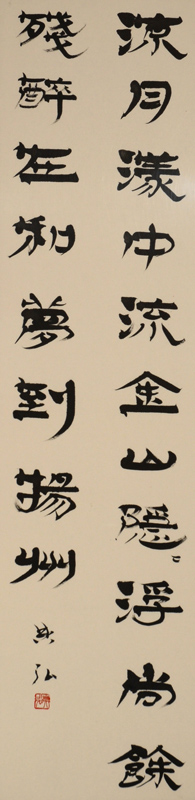 涼月漾中流金山隱〻浮尚餘
殘醉在和夢到揚州
弘